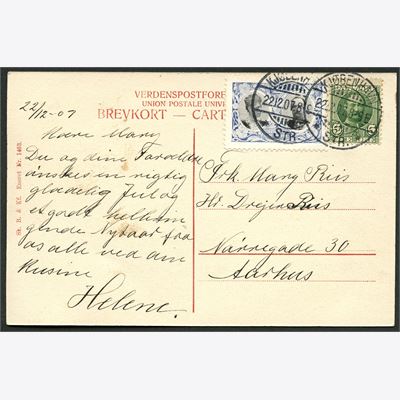 VERDENSPOSTFORE
UNION POSTALE UNIV
BREVKORT — CART
22/12-07
Kære Mary
Du og dine Forældre
ønskes en rigtig
glædelig Jul og
et godt
Nytaar fra
os alle ved din
Kusine
Helene.
Frk Mary Riis
Hr. Drejer Riis
Nørregade 30
Aarhus
KJØBENH
22.12.07
STR.
KJØBENH
STR.
5
5
Sk. B. & Kf. Eneret Nr. 1463.